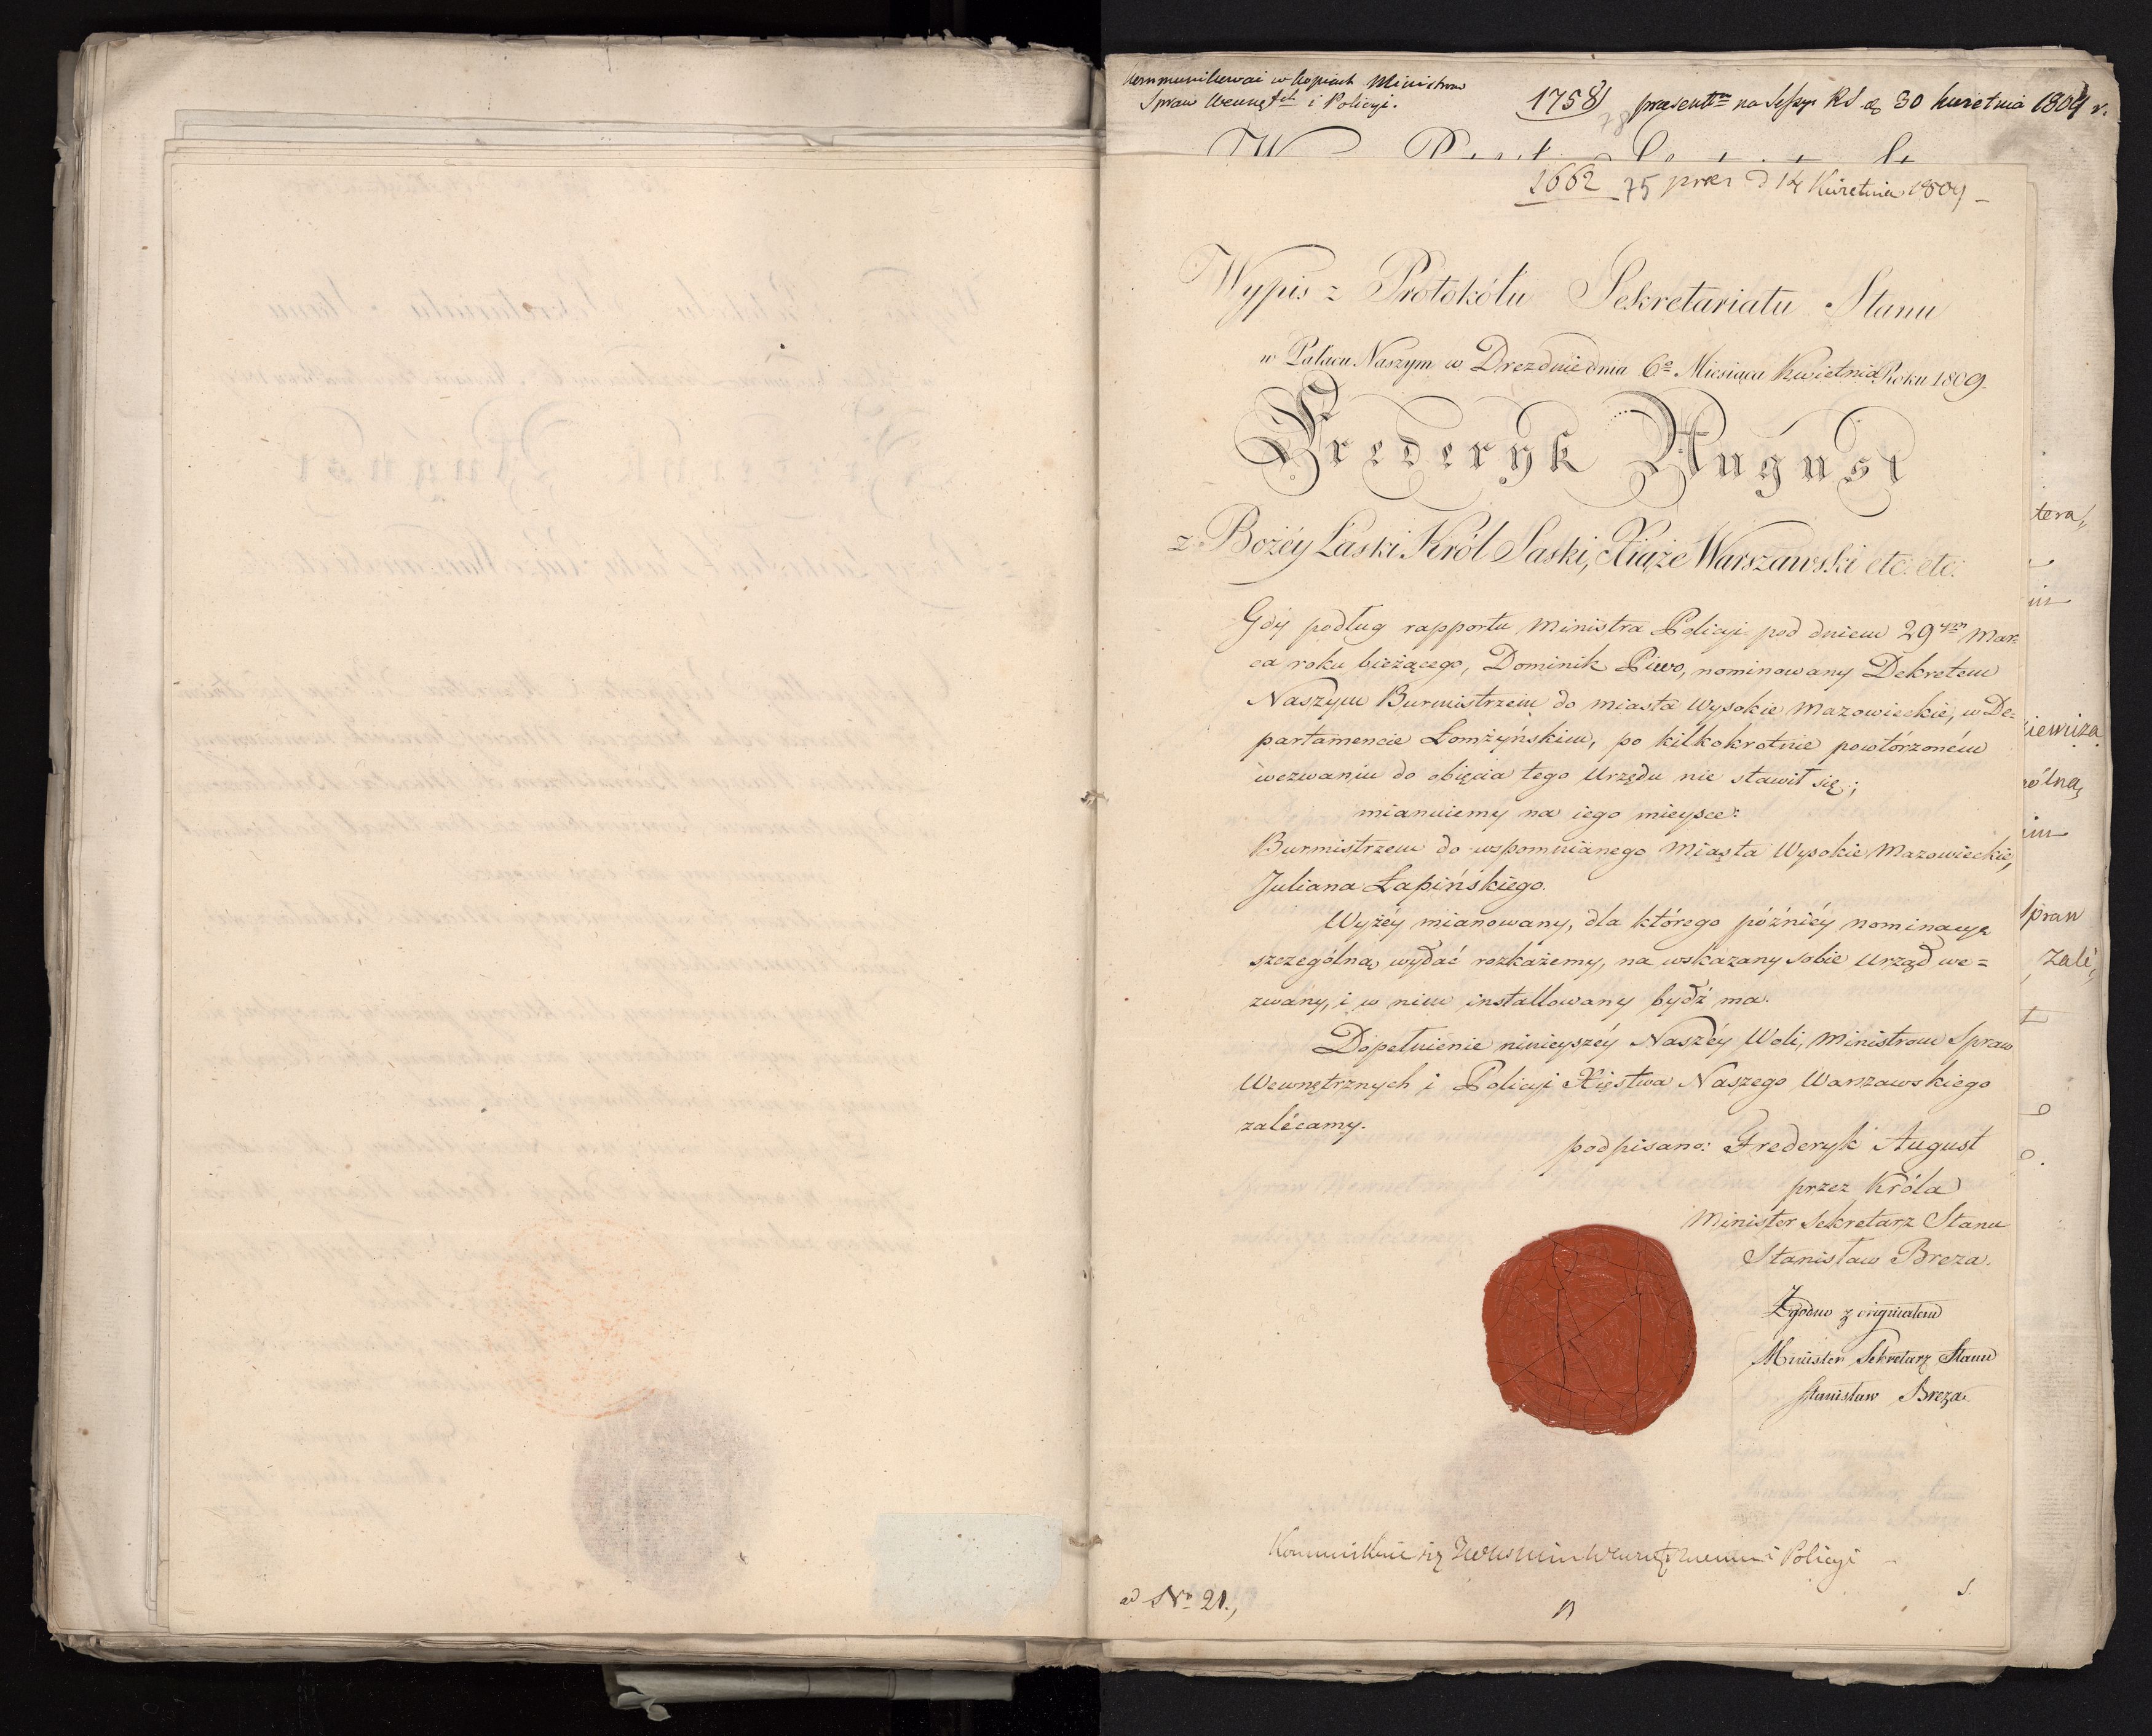 kommunikować w kopiach Ministrom
Spraw Wewnętch i Policyi.
1758 praesentm na Sessyi RS d 30 kwietnia 1809 r.
78
1662 75 prez d 14 Kwietnia 1809
Wypis z Protokółu Sekretariatu Stanu
w Pałacu Naszym w Dreznie dnia 6o Miesiąca Kwietnia Roku 1809.
Frederyk August
z Bożéy Łaski Król Saski, Xiąże Warszawski etc. etc.
Gdy podług rapportu Ministra Policyi pod dniem 29ym Mar=
ca roku bieżącego, Dominik Piwo, nominowany Dekretem
Naszym Burmistrzem do miasta Wysokie Mazowieckie, w De=
partamencie Łomżyńskim, po kilkokrotnie powtórzoném
wezwaniu do obięcia tego Urzędu nie stawił się;
mianuiemy na iego mieysce:
Burmistrzem do wspomnianego Miasta Wysokie Mazowieckie,
Juliana Łapińskiego.
Wyżéy mianowany, dla którego późniéy nominacyą
szczególną wydać rozkażemy, na wskazany sobie Urząd we=
zwany, i w nim installowany bydź ma.
Dopełnienie ninieyszéy Naszéy Woli, Ministrom Spraw
Wewnętrznych i Policyi Xięstwa Naszego Warszawskiego
zalécamy.
podpisano: Frederyk August
przez Króla
Minister Sekretarz Stanu
Stanisław Breza.
Zgodno z originałem
Minister Sekretarz Stanu
Stanisław Breza
Kommunikuie się i Policyi
ad No 21.,
tera,,
im
kiewicza
ólną
im
Spraw
zalé,,